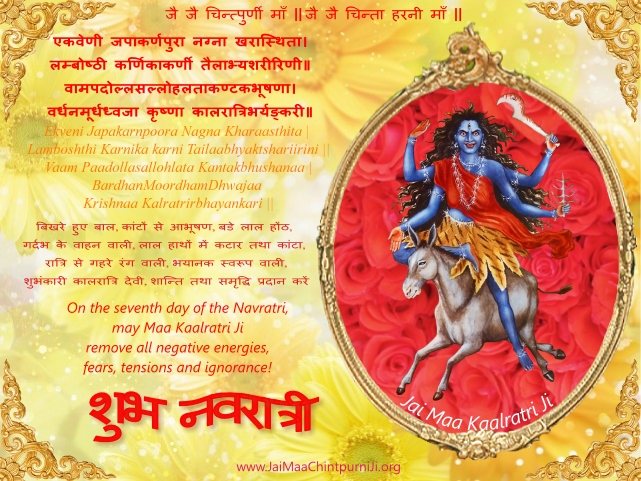 जै जै चिन्तपुर्णी माँ || जै जै चिन्ता हरनी माँ ||
एकवेणी जपाकर्णपुरा नग्ना खरास्थिता।
लम्बोष्ठी कर्णिकाकर्णी तैलाभ्यशरीरिणी॥
वामपदोल्लसल्लोहलताकण्टकभूषणा।
वर्धनमूर्धध्वजा कृष्णा कालरात्रिभर्यङ्करी॥
Ekveni Japakarnpoora Nagna Kharaasthita |
Lamboshthi Karnika karni Tailaabhyaktshariirini ||
Vaam Paadollasallohlata Kantakbhushanaa |
BardhanMoordhamDhwajaa
Krishnaa Kalratrirbhayankari ||
बिखरे हुए बाल, कांटों से आभूषण, बडे लाल होंठ,
गर्दभ के वाहन वाली, लाल हाथों में कटार तथा कांटा,
रात्रि से गहरे रंग वाली, भयानक स्वरूप वाली,
शुभंकारी कालरात्रि देवी, शान्ति तथा समृद्धि प्रदान करें
On the seventh day of the Navratri,
may Maa Kaalratri Ji
remove all negative energies,
fears, tensions and ignorance!
शुभ नवरात्री
Jai Maa Kaalratri Ji
www.JaiMaaChintpurniJi.org